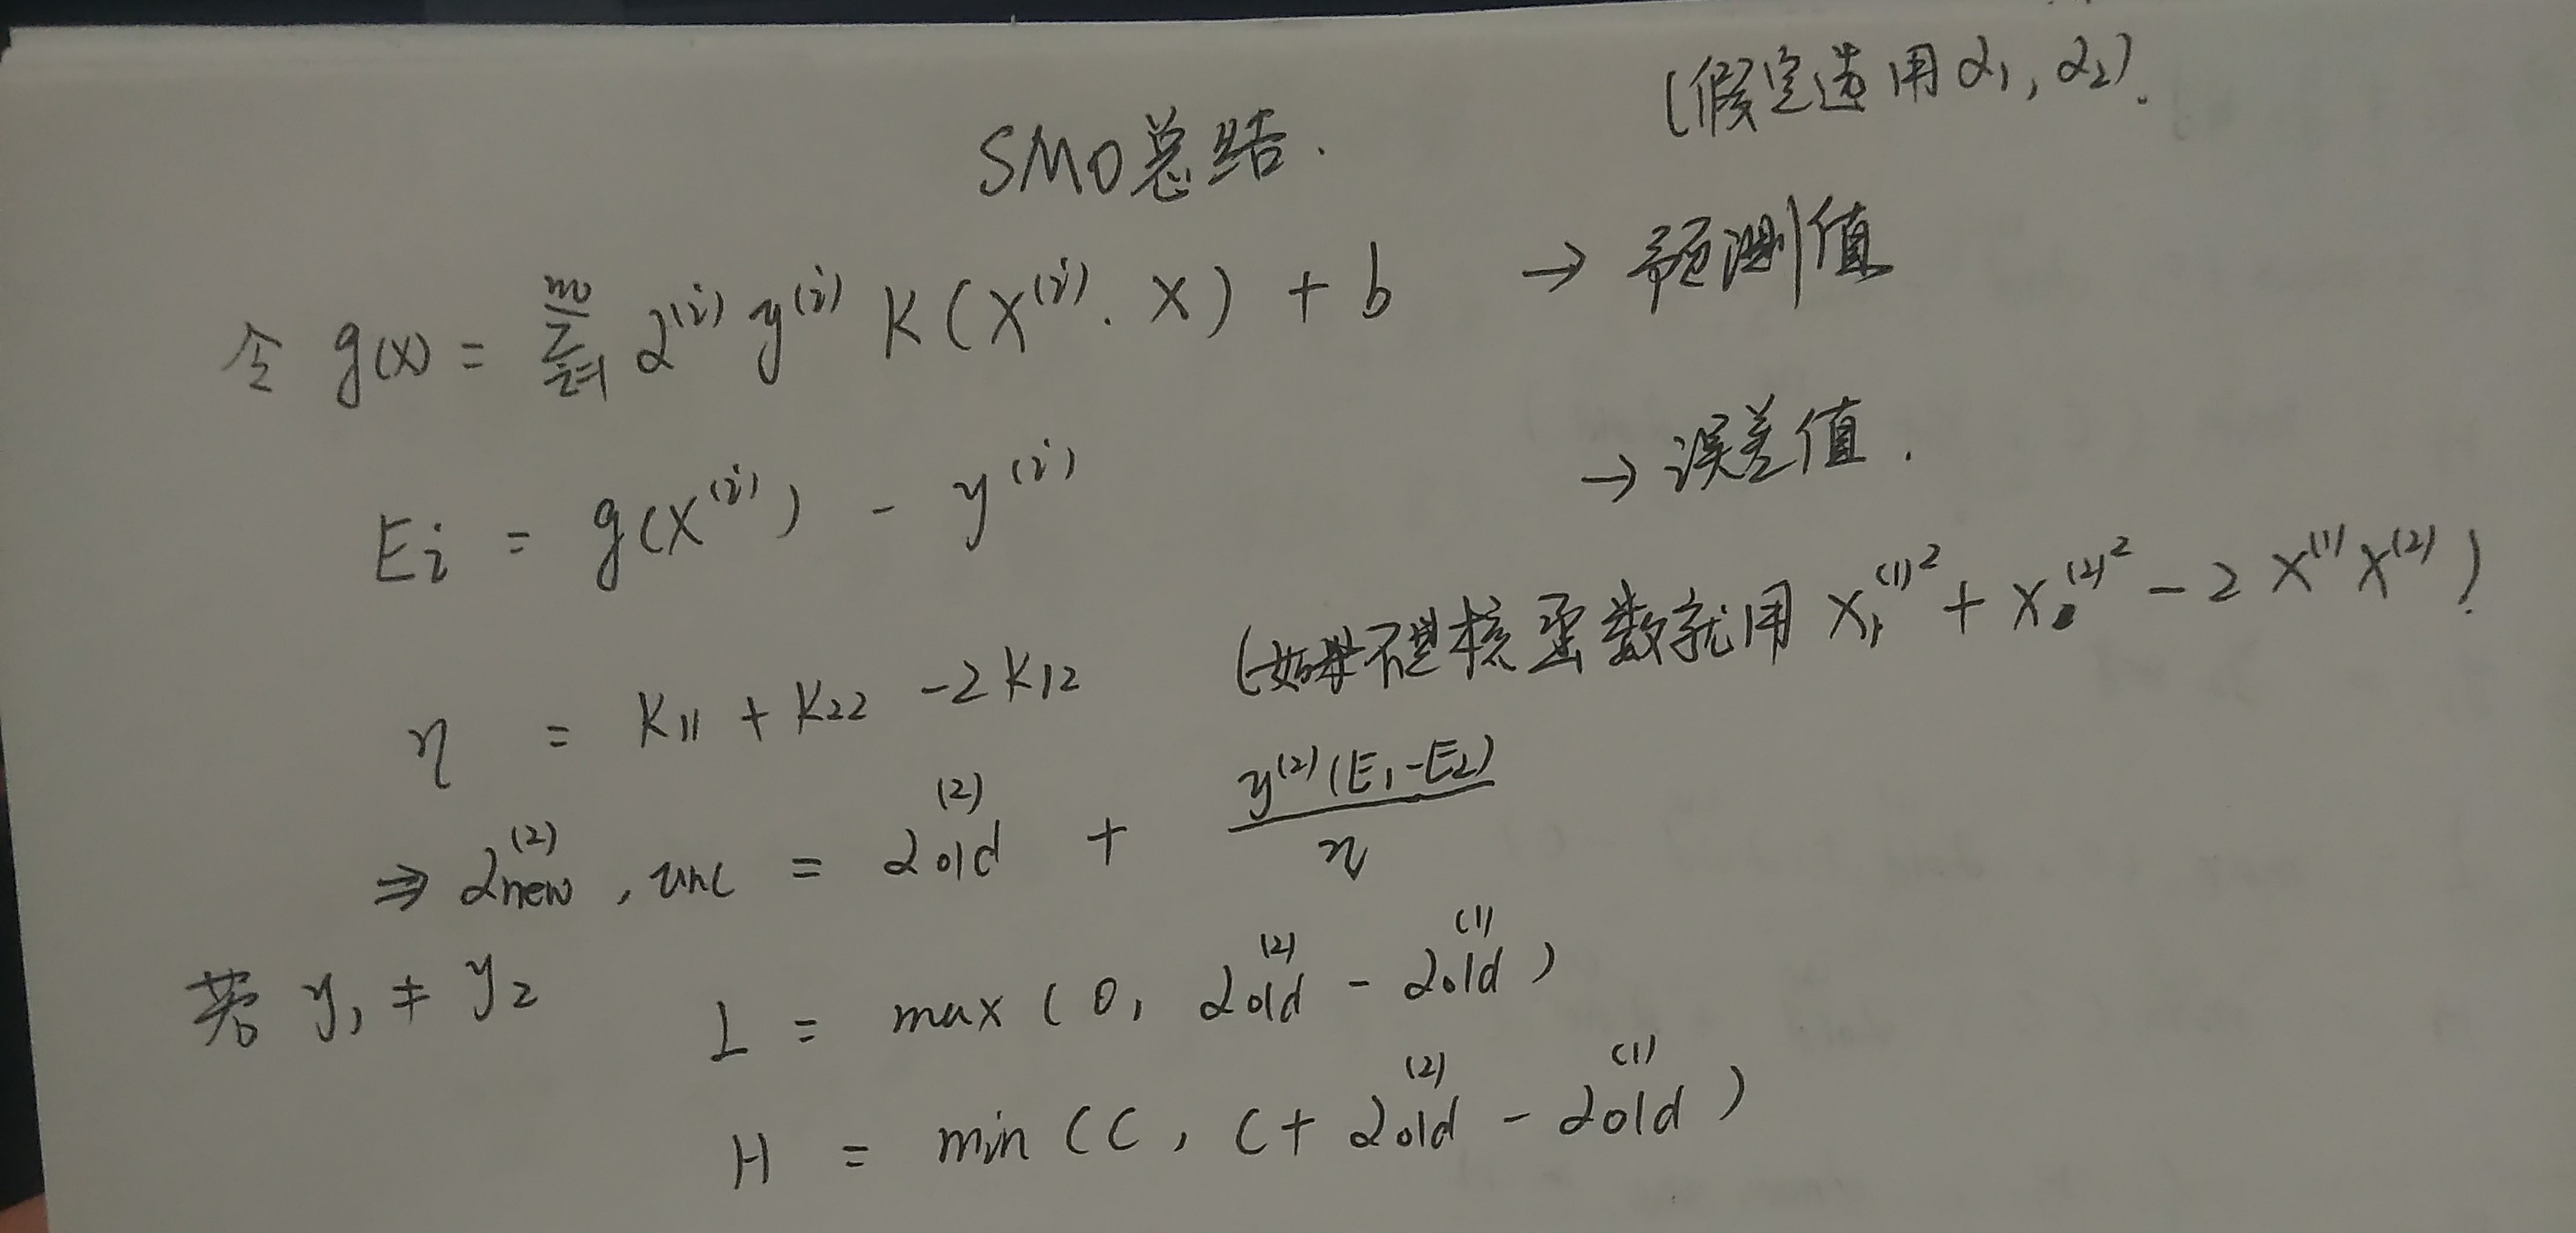 (假定选用α₁, α₂).
SMO总结.
令 g(x) = ∑_{i=1}^{m} α^{(i)} y^{(i)} K(x^{(i)}. x) + b → 预测值
Ei = g(x^{(i)}) - y^{(i)} → 误差值.
η = K₁₁ + K₂₂ - 2K₁₂ (如果不是核函数就用 x₁^{(1)2} + x^{(2)2} - 2x^{(1)}x^{(2)})
⇒ α_{new}^{(2)}, unc = α_{old}^{(2)} + \frac{y^{(2)}(E₁-E₂)}{η}
若 y₁ ≠ y₂ L = max(0, α_{old}^{(2)} - α_{old}^{(1)})
H = min(C, C + α_{old}^{(2)} - α_{old}^{(1)})